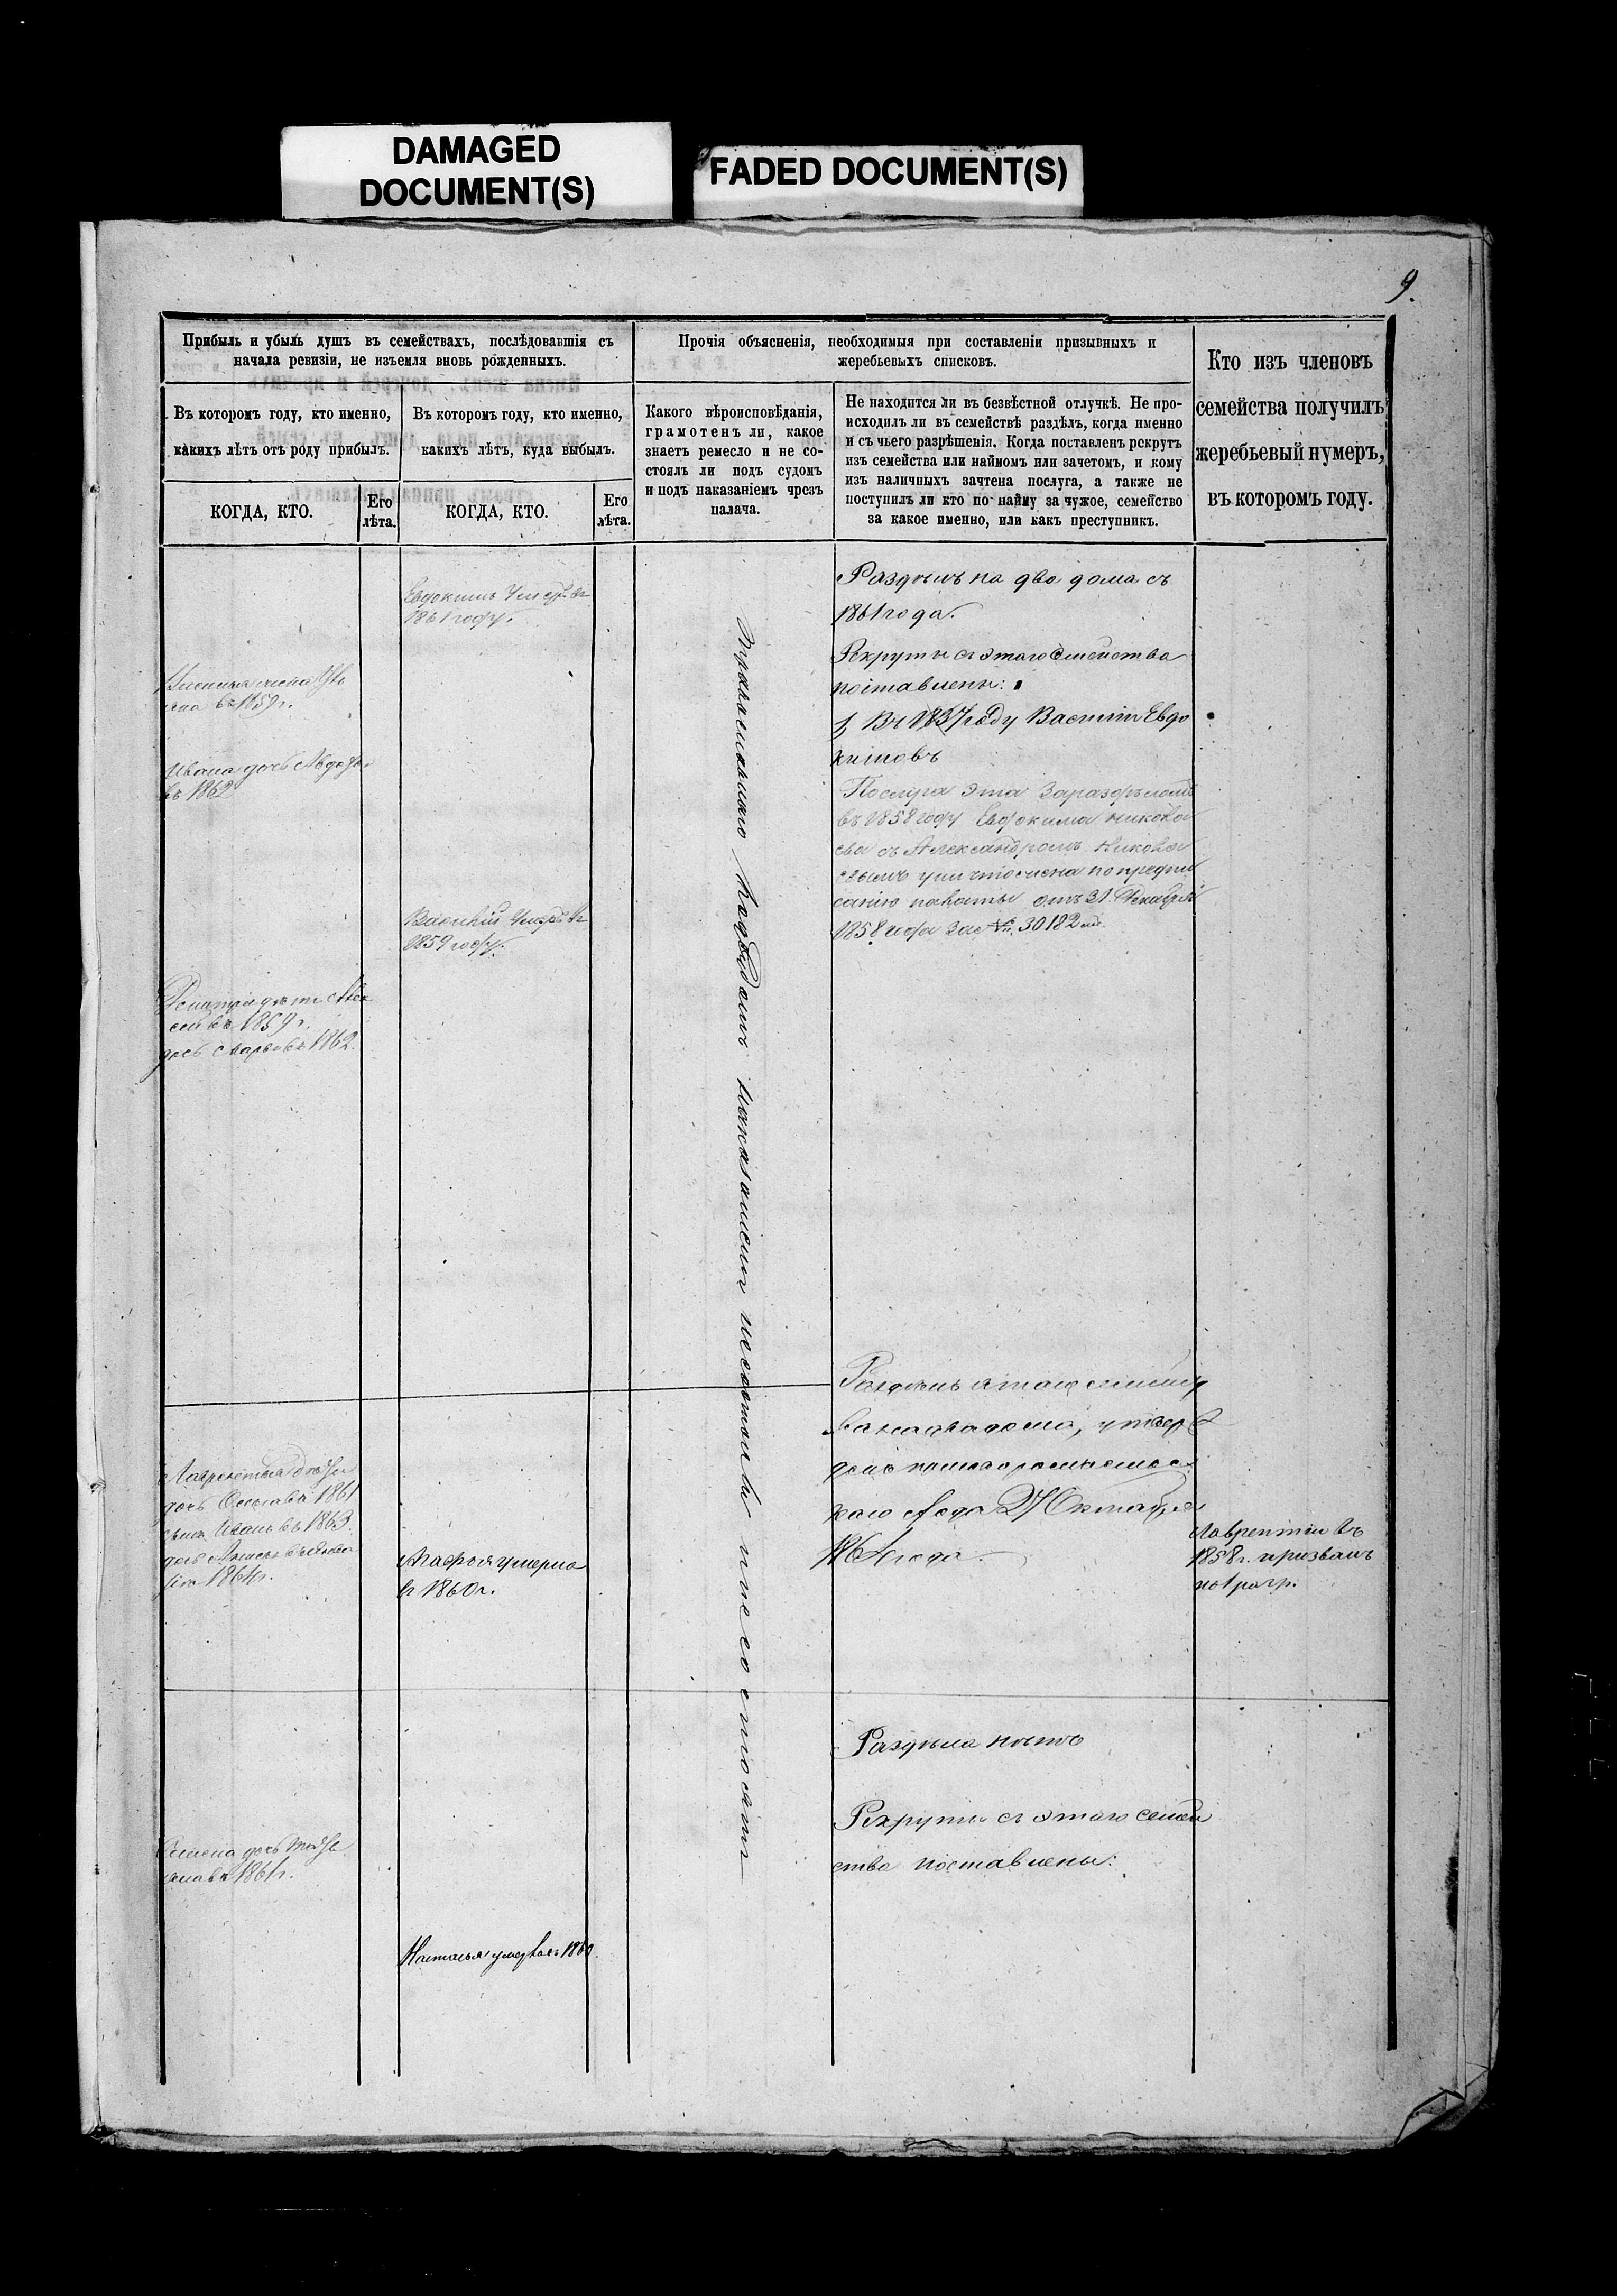 DAMAGED
DOCUMENT(S)
FADED DOCUMENT(S)
9.
Прибыль и убыль душъ въ семействахъ, послѣдовавшія съ
начала ревизіи, не изъемля вновь рожденныхъ.
Въ которомъ году, кто именно,
какихъ лѣтъ отъ роду прибылъ.
Въ которомъ году, кто именно,
какихъ лѣтъ, куда выбылъ.
КОГДА, КТО.
Его
лѣта.
КОГДА, КТО.
Его
лѣта.
Прочія объясненія, необходимыя при составленіи призывныхъ и
жеребьевыхъ списковъ.
Какого вѣроисповѣданія,
грамотенъ ли, какое
знаетъ ремесло и не со-
стоялъ ли подъ судомъ
и подъ наказаніемъ чрезъ
палача.
Не находится ли въ безвѣстной отлучкѣ. Не про-
исходилъ ли въ семействѣ раздѣлъ, когда именно
и съ чьего разрѣшенія. Когда поставленъ рекрутъ
изъ семейства или наймомъ или зачетомъ, и кому
изъ наличныхъ зачтена послуга, а также не
поступилъ ли кто по найму за чужое, семейство
за какое именно, или какъ преступникъ.
Кто изъ членовъ
семейства получилъ
жеребьевый нумеръ,
въ которомъ году.
Евдокимъ Умеръ въ
1861 году.
жена
въ 1859 г.
Ивана дочь Авдотья
въ 1862
Василій Умеръ въ
1859 году.
Дмитрія дѣти Алек
сѣй въ 1859 г.
дочь Марья въ 1862.
Православнаго подъ судомъ и наказаніемъ несостояли и не состоятъ
Раздѣлъ на два дома съ
1861 года.
Рекруты съ этого Семейства
поставлены:
1, Въ 1837 году Василій Евдо
кимовъ
Послуга эта За раздѣломъ
въ 1858 году Евдокима Никола
ева съ Александромъ Никола
евымъ уничтожена по предпи
санію палаты отъ 31 Декабря
1858 года За № 30182
Раздѣлъ этого семейс
ва на два дома, утвер
1864 года.
Лаврентія
дочь въ 1861
сынъ Иванъ въ 1863.
дочь
1864 г.
Агафья умерла
въ 1860 г.
Лаврентій въ
1858 г. призванъ
по 1 разр.
Раздѣла нѣтъ
Рекруты съ этого семей
ства поставлены:
Семена дочь
въ 1861 г.
Наталья умерла въ 1860